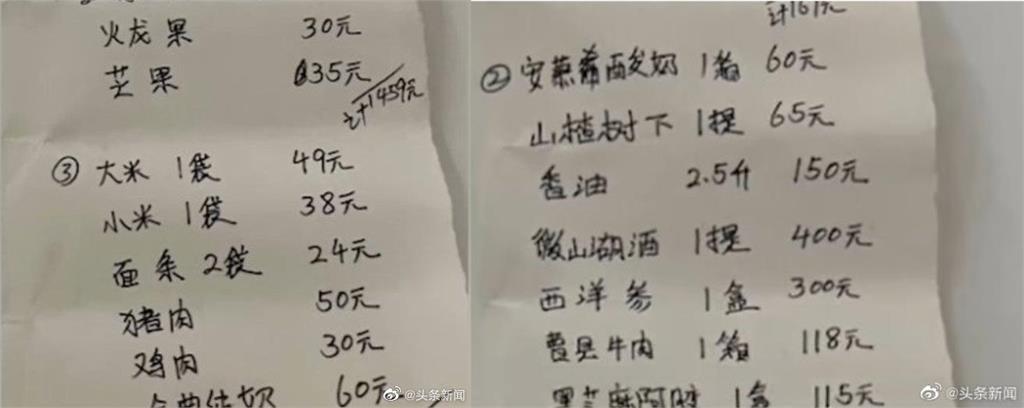 火龙果 30元
芒果 35元
计1459元
③ 大米 1袋 49元
小米 1袋 38元
面条 2袋 24元
猪肉 50元
鸡肉 30元
纯奶 60元
@头条新闻
计161元
② 安慕希酸奶 1箱 60元
山楂树下 1提 65元
香油 2.5升 150元
微山湖酒 1提 400元
西洋参 1盒 300元
曹县牛肉 1箱 118元
黑芝麻阿胶 1盒 115元
@头条新闻